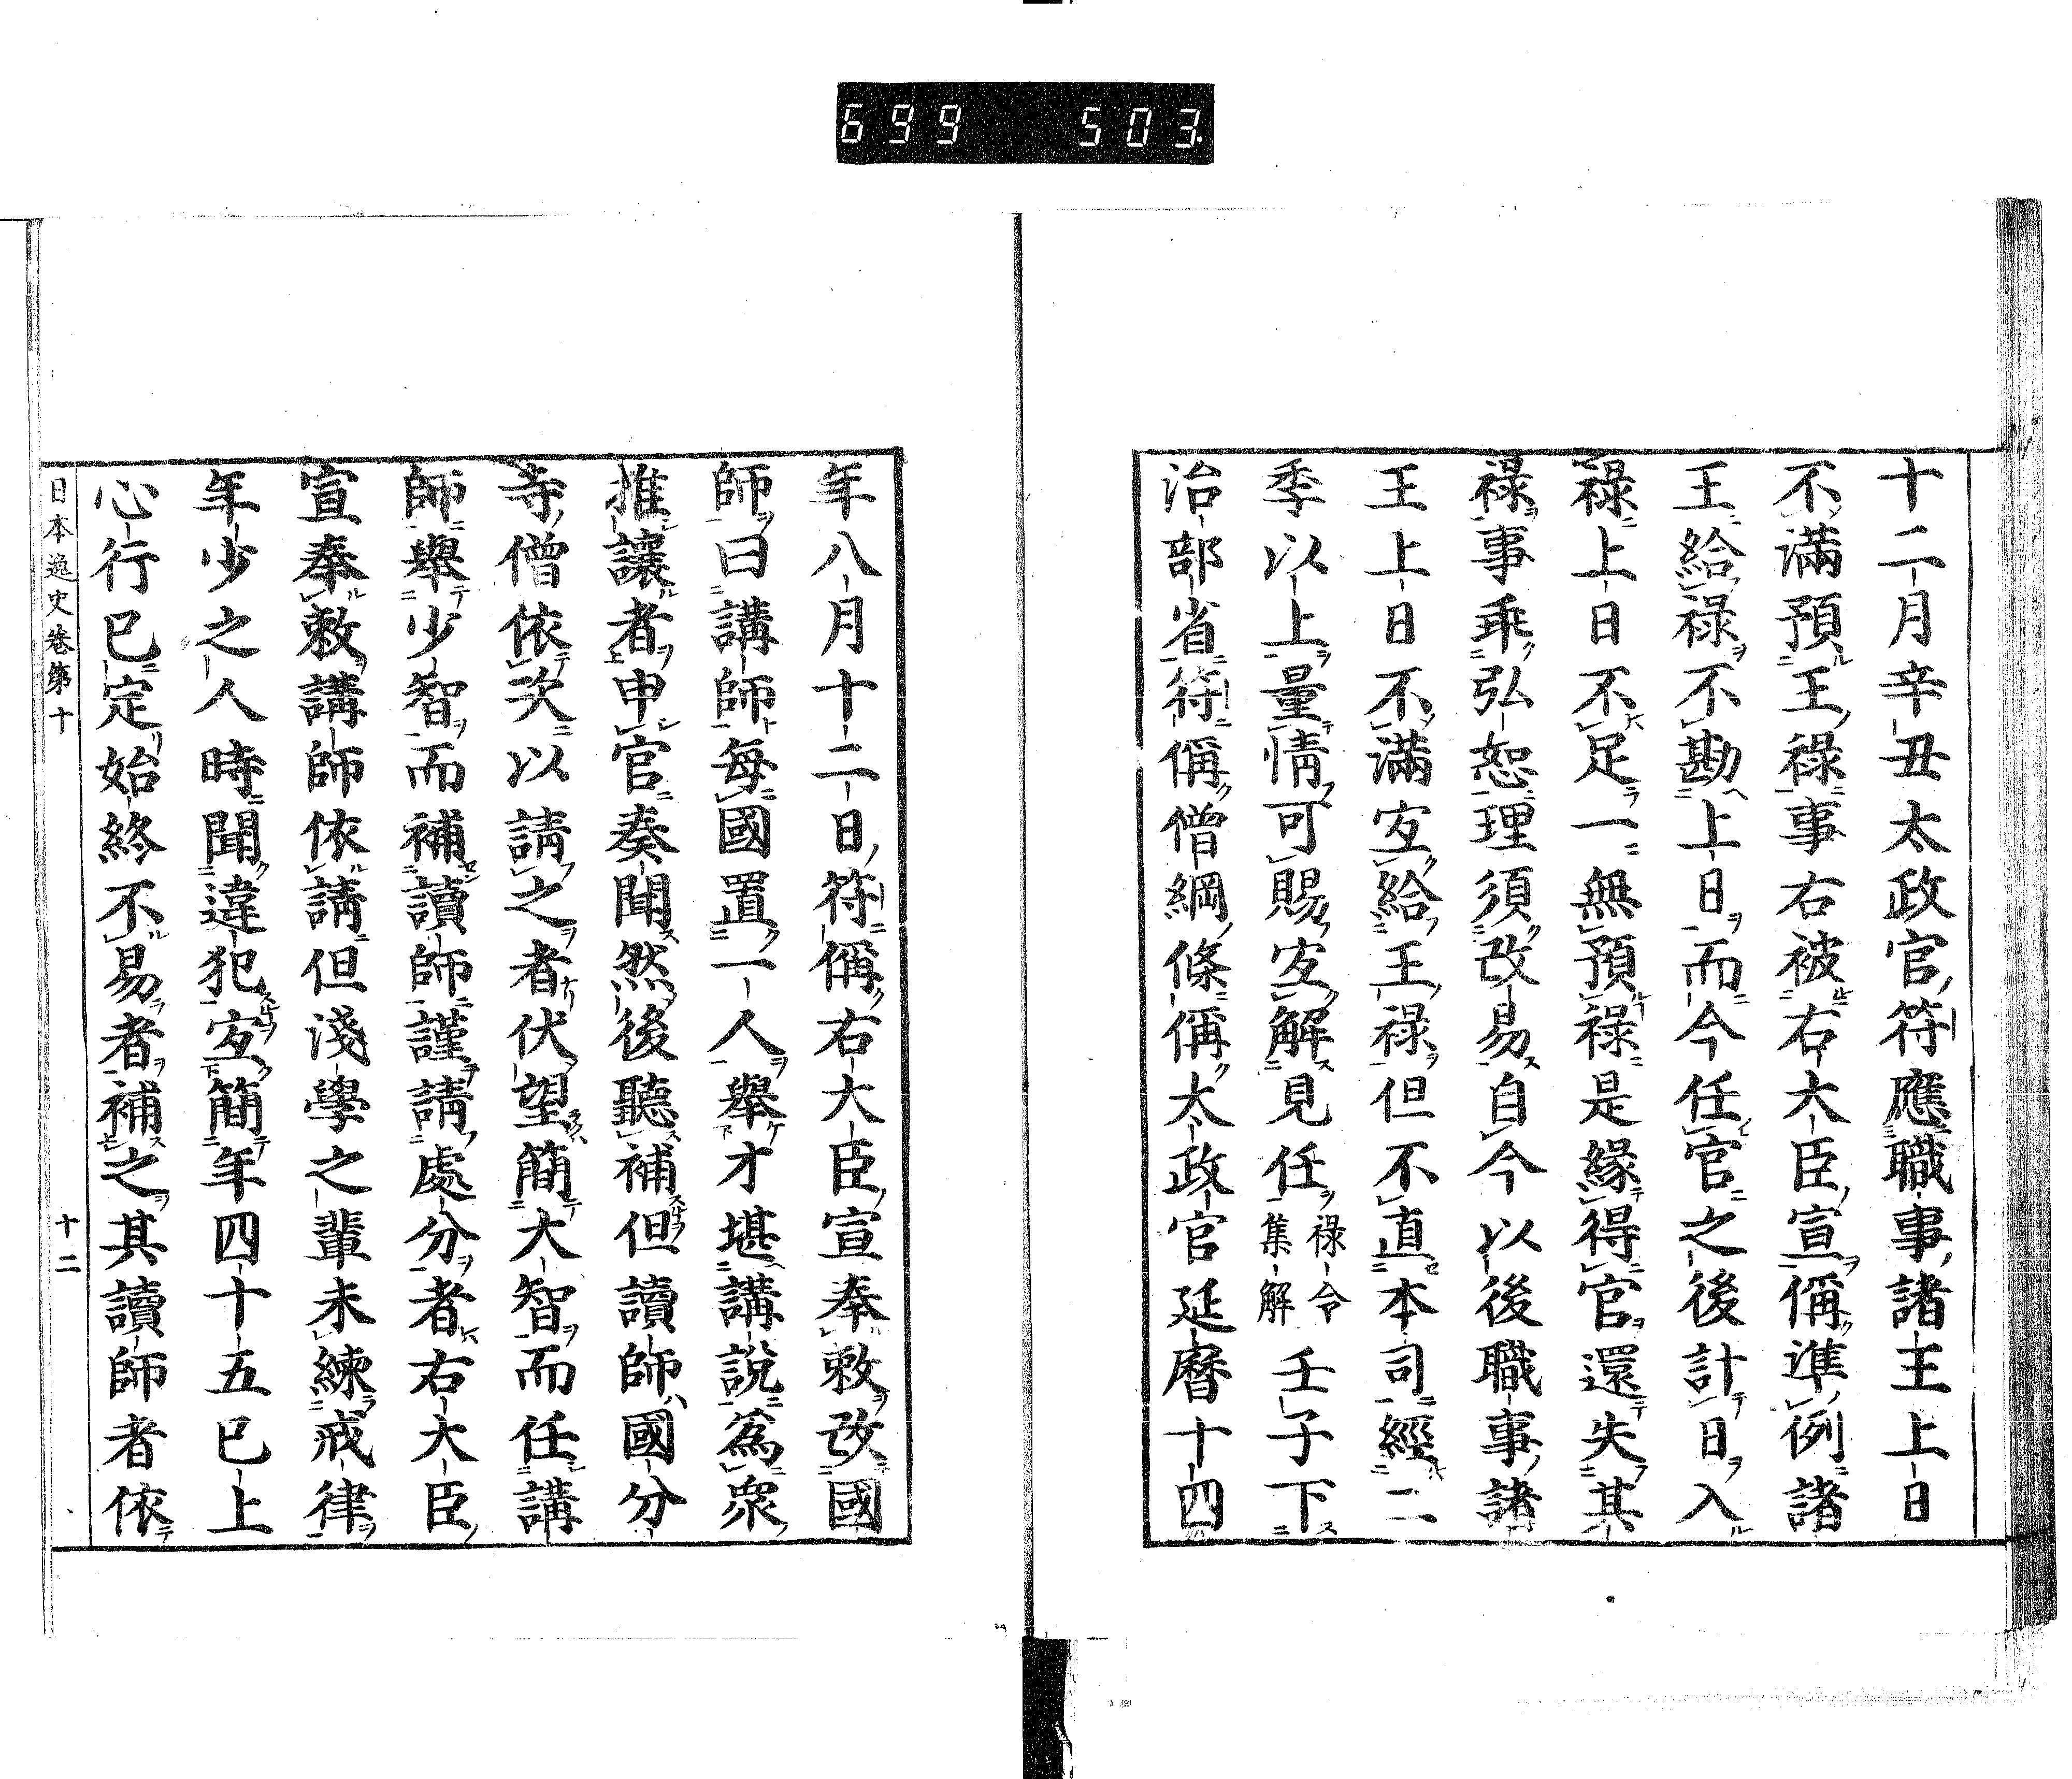 699 503
十二月辛丑太政官符應職事諸王上日
不滿預王祿事右被右大臣宣偁準例諸
王給祿不勘上日而今任官之後計日入
祿上日不足一無預祿是緣得官還失其
祿事乖弘恕理須改易自今以後職事諸
王上日不滿宐給王祿但不直本司經二
季以上量情可賜宐解見任祿令集解壬子下
治部省符偁僧綱條偁太政官延曆十四
年八月十二日符偁右大臣宣奉敕改國
師曰講師每國置一人舉才堪講說爲衆
推讓者申官奏聞然後聽補但讀師國分
寺僧依次以請之者伏望簡大智而任講
師舉少智而補讀師謹請處分者右大臣
宣奉敕講師依請但淺學之輩未練戒律
年少之人時聞違犯宐簡年四十五已上
心行已定始終不易者補之其讀師者依
日本逸史卷第十 十二